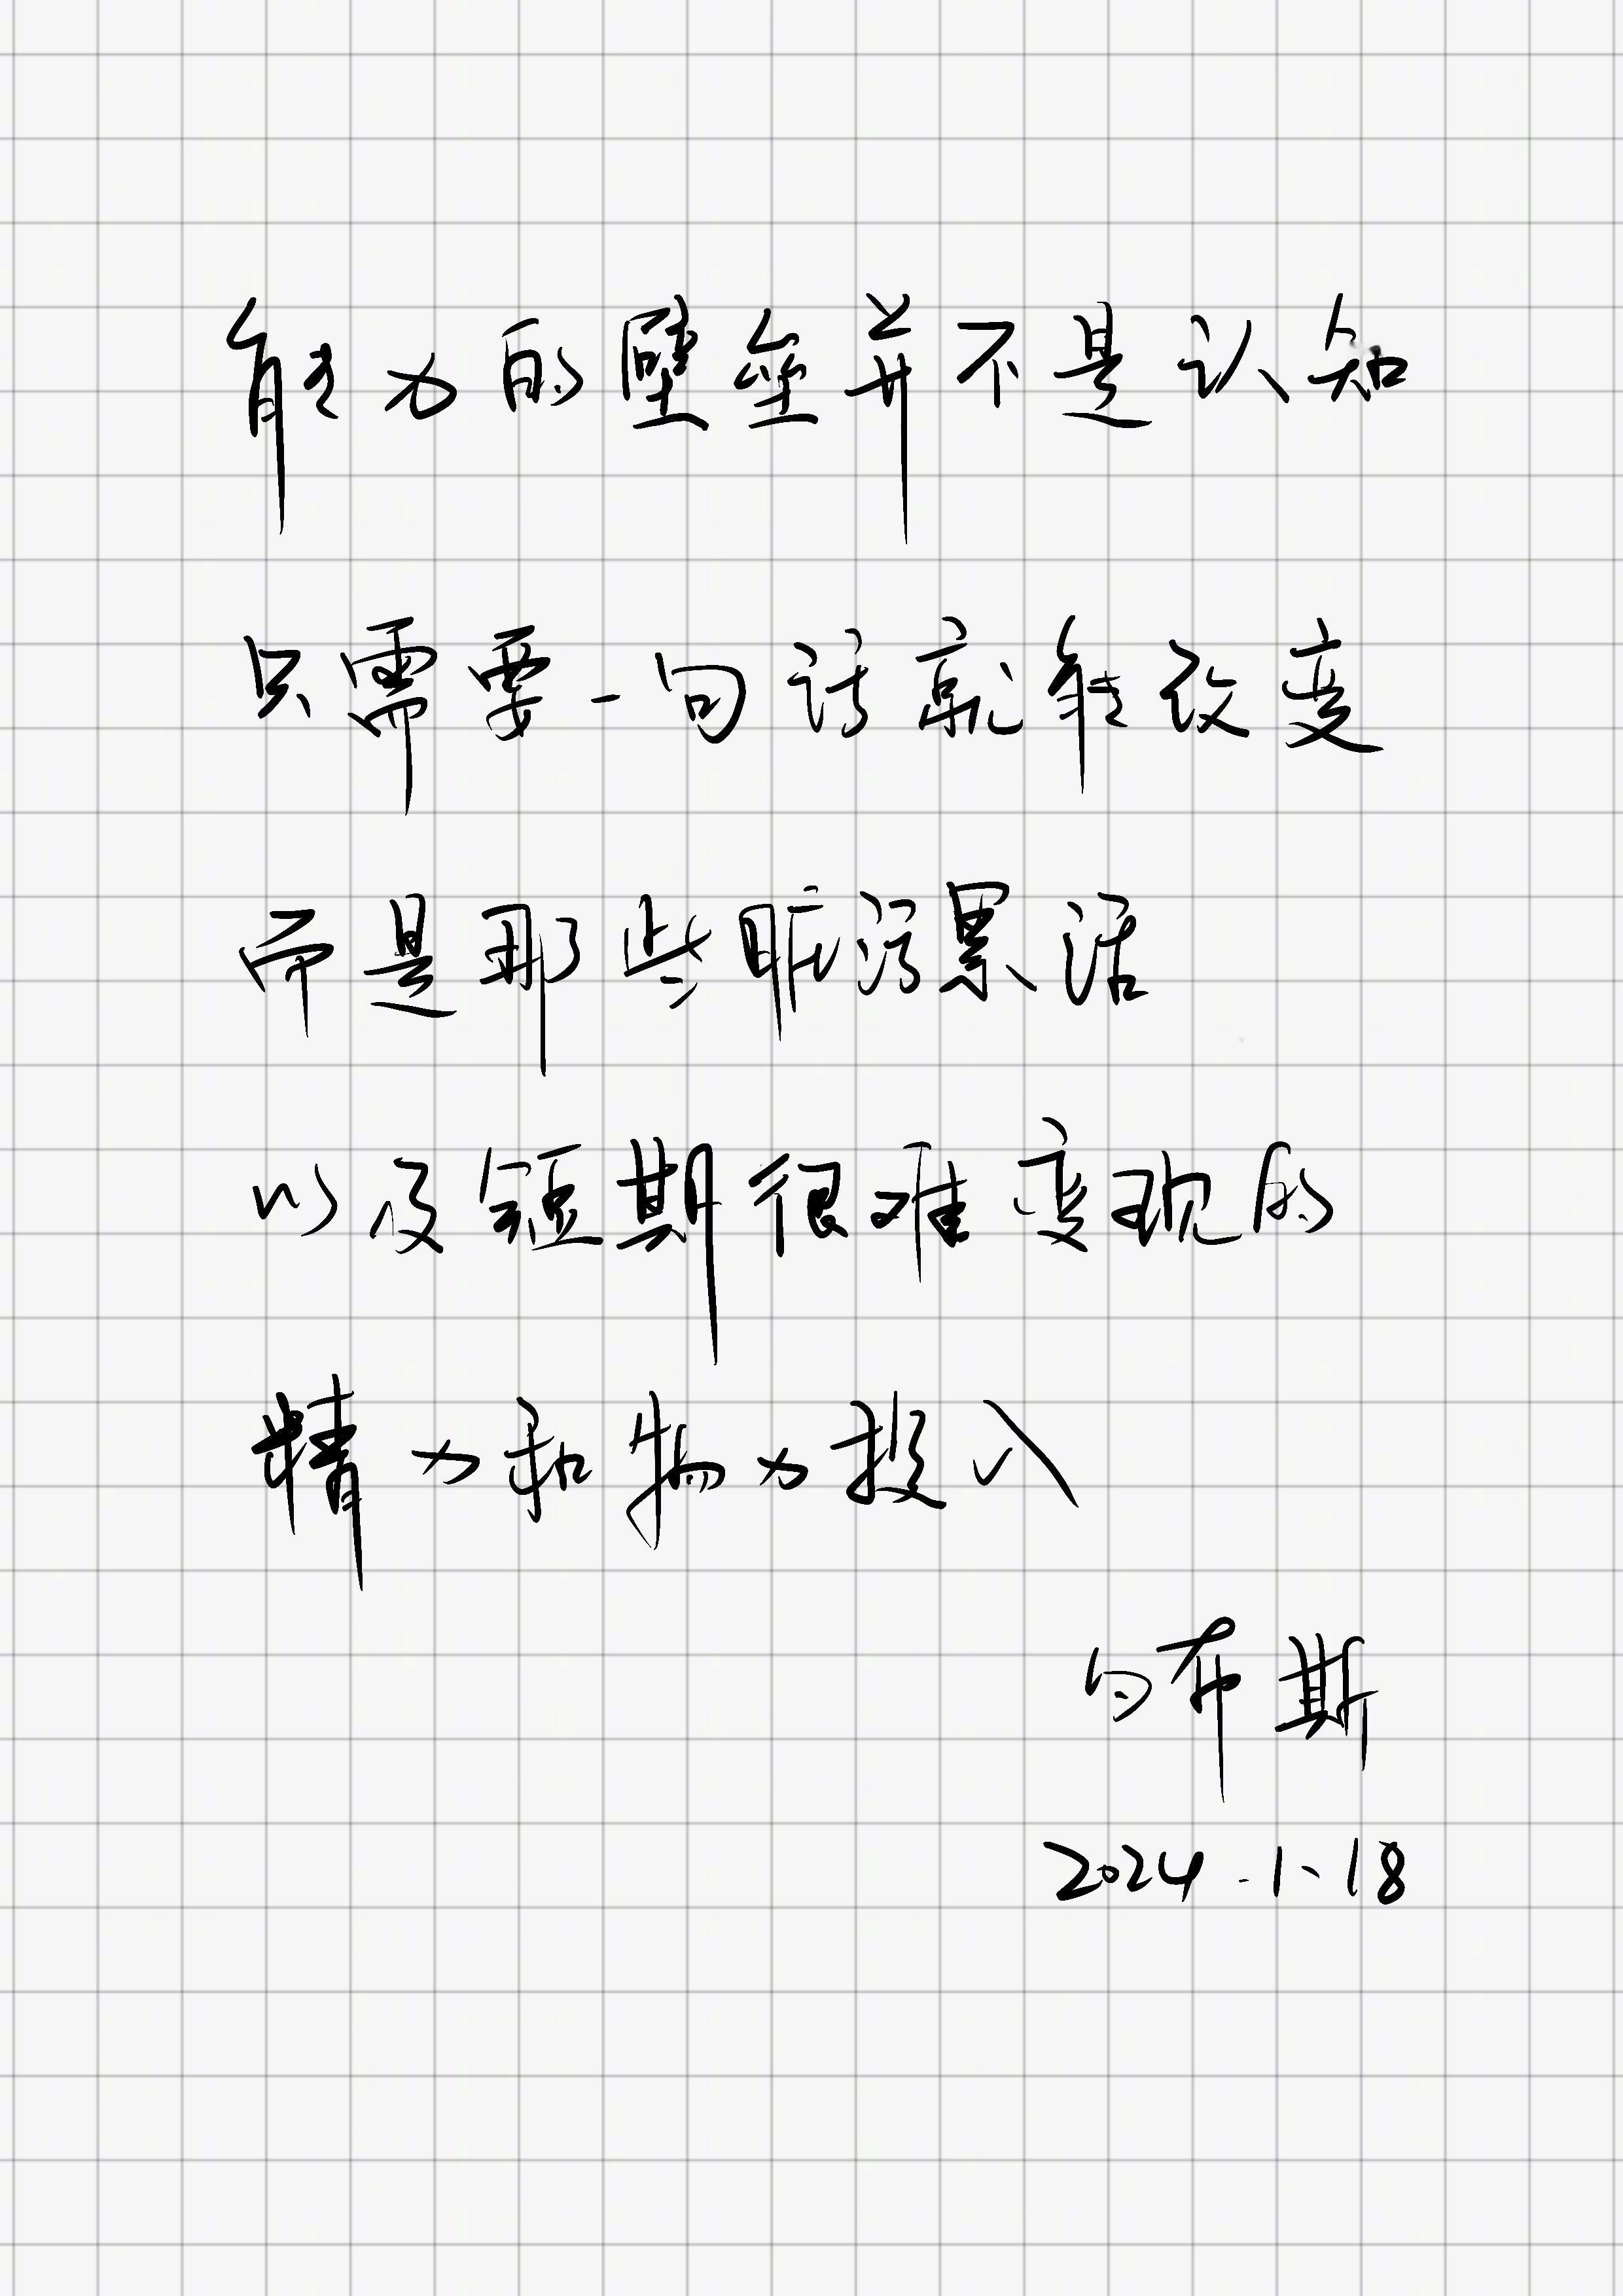 能力的壁垒并不是认知
只需要一句话就能改变
而是那些脏污累活
以及短期很难变现的
精力和物力投入
白布斯
2024.1.18